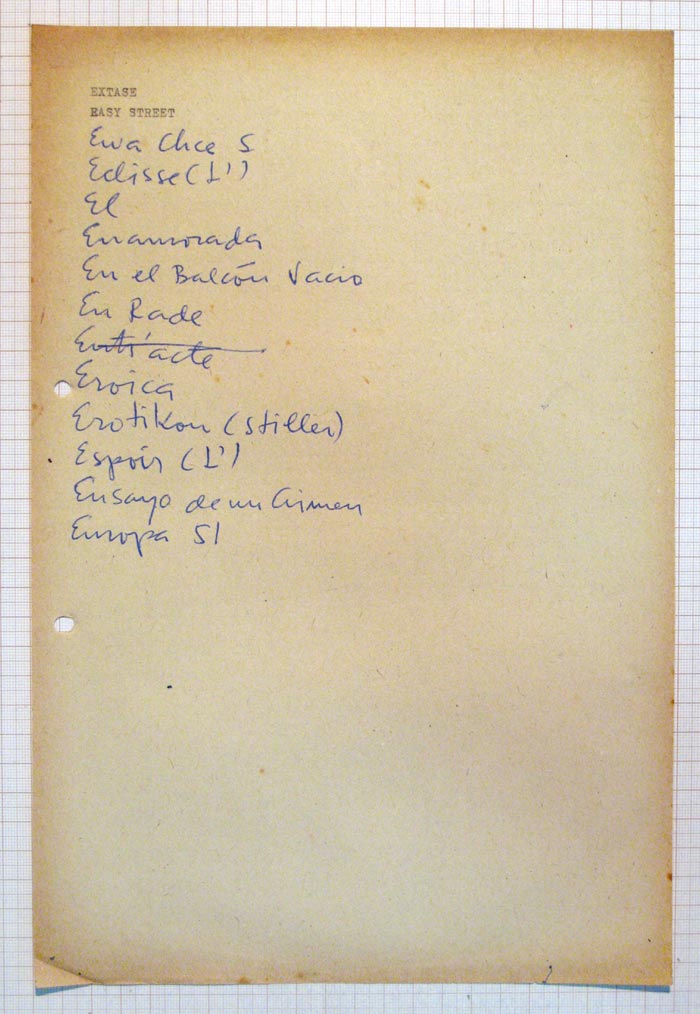 EXTASE
EASY STREET
Ewa Chce S
Eclisse (L')
El
Enamorada
En el Balcón Vacio
En Rade
Entr'acte
Eroica
Erotikon (Stiller)
Espoir (L')
Ensayo de un Crimen
Europa 51